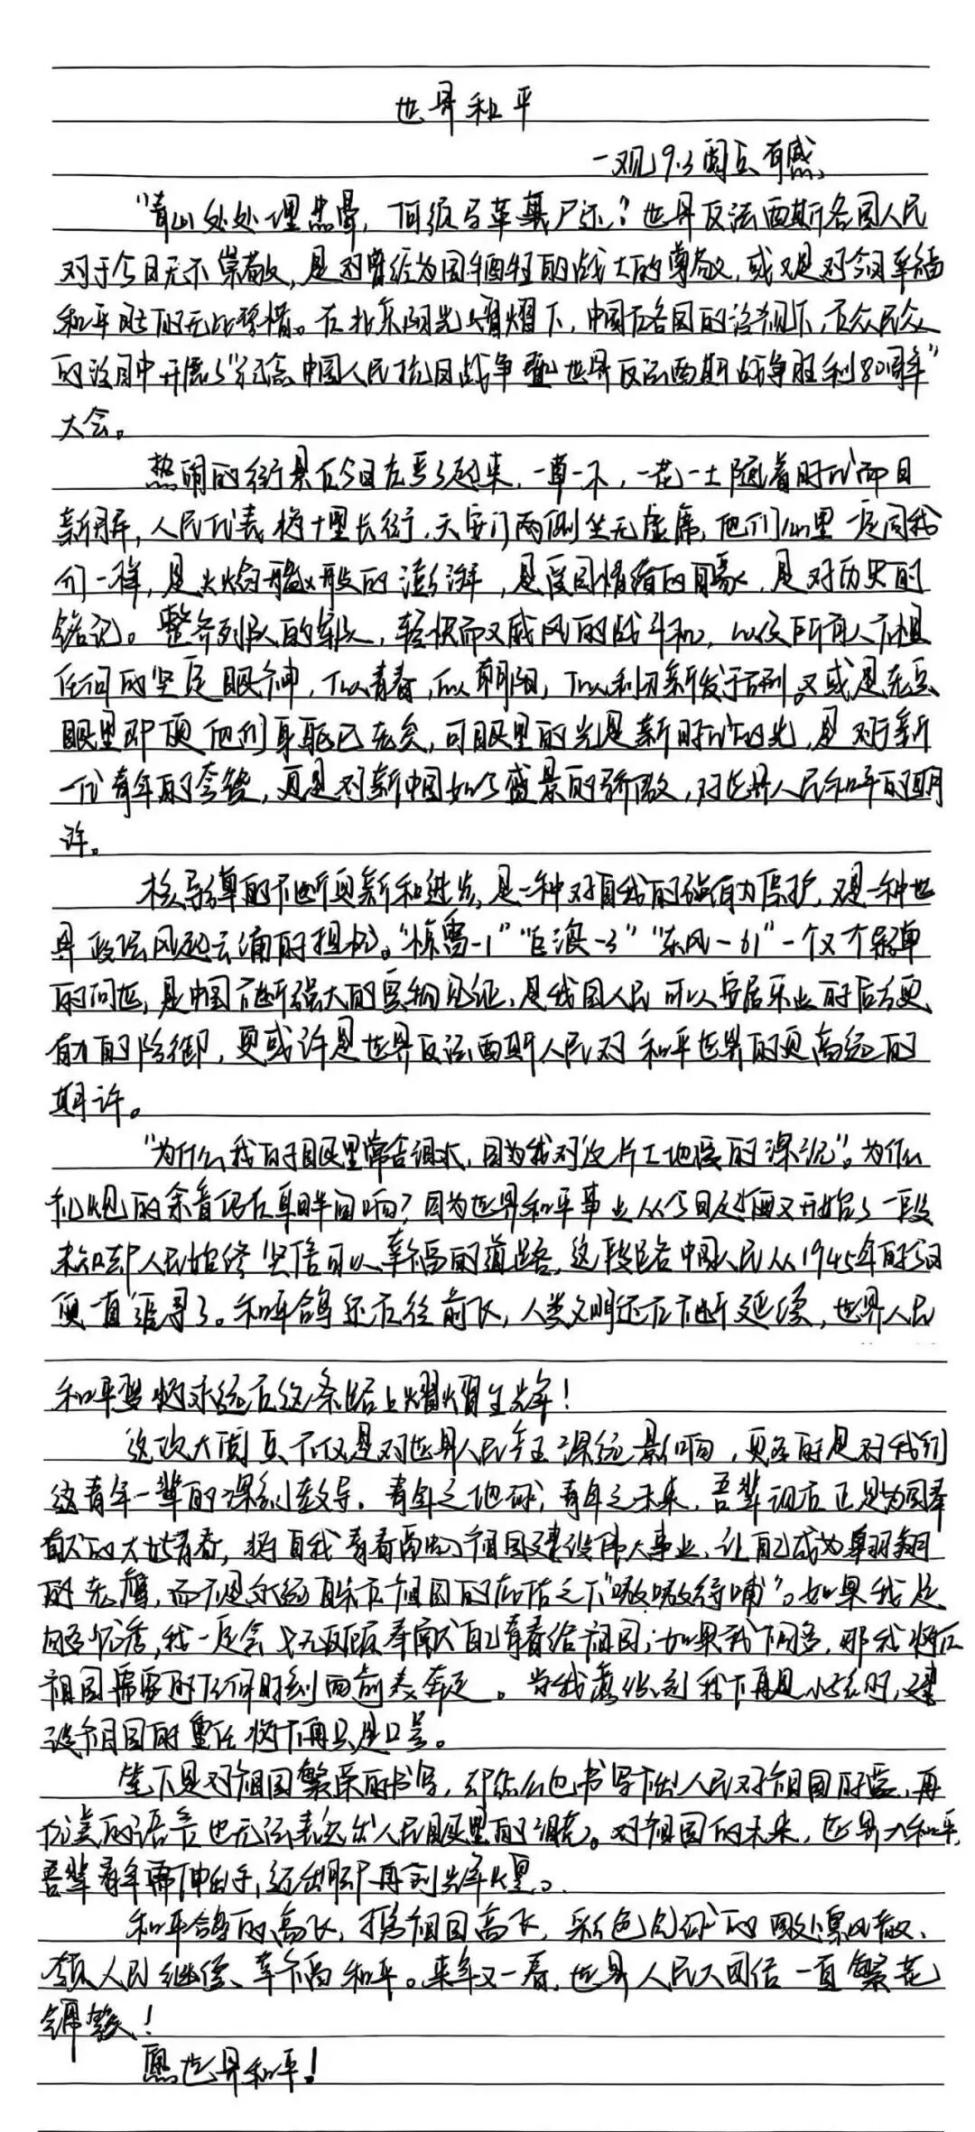 世界和平
一观9.3阅兵有感
"青山处处埋忠骨，何须马革裹尸还？世界反法西斯各国人民
对于今日无不崇敬，是对曾经为国牺牲的战士的尊敬，或又是对今日幸福
和平的无比珍惜。在北京阳光耀熠下，中国在各国的注视下，在众民众
的注目中开展了"纪念中国人民抗日战争暨世界反法西斯战争胜利80周年"
大会。
热闹的街景在今日庄严了起来，一草一木，一花一土随着时代而日
新月异，人民代表将十里长街，天安门两侧坐无虚席，他们心里一定同我
们一样，是火焰般的澎湃，是爱国情绪的自豪，是对历史的
铭记。整齐列队的军队，轻快而又威风的战斗机，以及所有人不惧
任何的坚定眼神，似青春，似朝阳，似利刃新发于硎。又或是老兵
眼里即便他们身躯已衰矣，可眼里的光是新时代的光，是对于新
一代青年的夸赞，更是对新中国如今盛景的骄傲，对世界人民和平的期
许。
核导弹的不断更新和进步，是一种对自我的强有力保护，又是一种世
界政坛风起云涌的担忧。"惊雷-1""巨浪-3""东风-61"一个又一个导弹
的问世，是中国不断强大的实物见证，是我国人民可以安居乐业的后方更
有力的防御，更或许是世界反法西斯人民对和平世界的更高远的
期许。
"为什么我的眼里常含泪水，因为我对这片土地爱的深沉"。为什么
礼炮的余音仍在耳畔回响？因为世界和平事业从今日起便又开始了一段
未知却人民始终坚信可以幸福的道路，这段路中国人民从1945年的今日
便一直追寻了。和平鸽还在往前飞，人类文明还在不断延续，世界人民
和平梦将永远在这条路上熠熠生辉！
这次大阅兵不仅是对世界人民产生深远影响，更多的是对我们
这青年一辈的深刻教导。青年之地砖，青年之未来，吾辈现在正是为国奉
献的大好青春，将自我青春融入祖国建设伟大事业，让自己成为翱翔
的雄鹰，而不是永远躲在祖国的庇佑之下"嗷嗷待哺"。如果我足
够优秀，我一定会义无反顾奉献自己青春给祖国；如果我不够多，那我将在
祖国需要的任何时刻面前去奔走。当我意识到我不再是小孩时，建
设祖国的重任将不再只是口号。
笔下是对祖国繁荣的书写，却怎么也书写不出人民对祖国的爱，再
优美的语言也无法表达出人民眼里的泪花。对祖国的未来，世界人和平，
吾辈青年需伸出手，迈出脚再到光辉里。
和平鸽的高飞，携祖国高飞，彩色气球的四处漂散，
领人民继续、幸福和平。来年又一春，世界人民大团结一直繁花
锦簇！
愿世界和平！